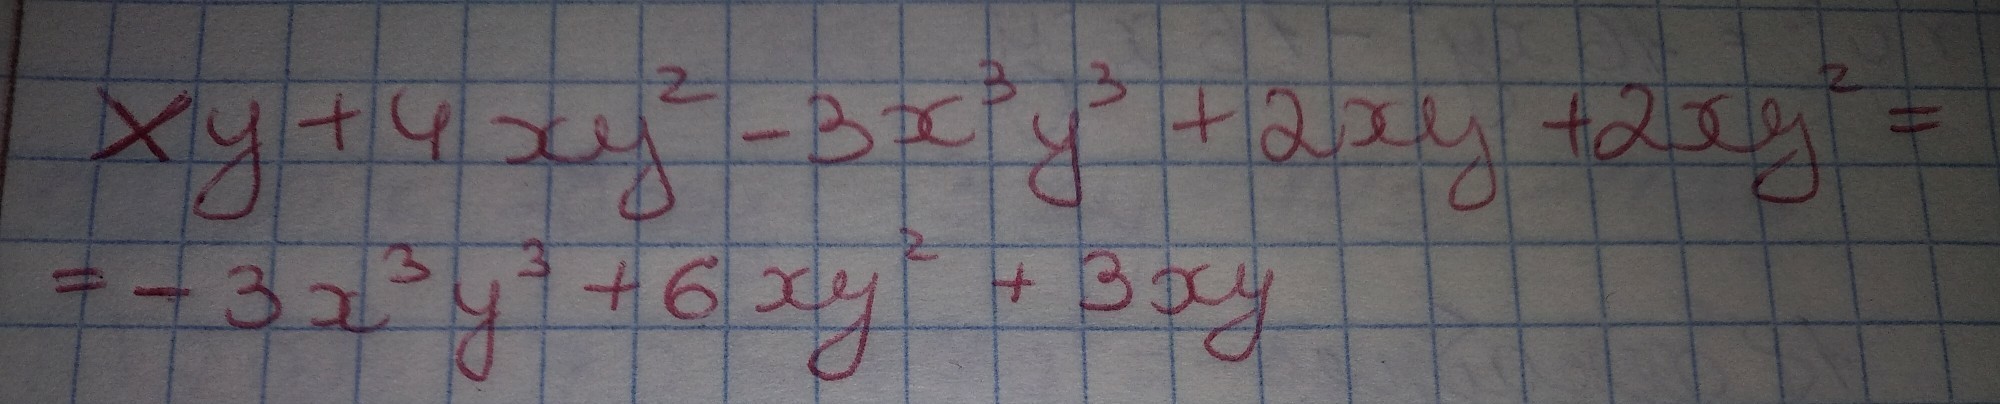 xy + 4xy² - 3x³y³ + 2xy + 2xy² =
= - 3x³y³ + 6xy² + 3xy